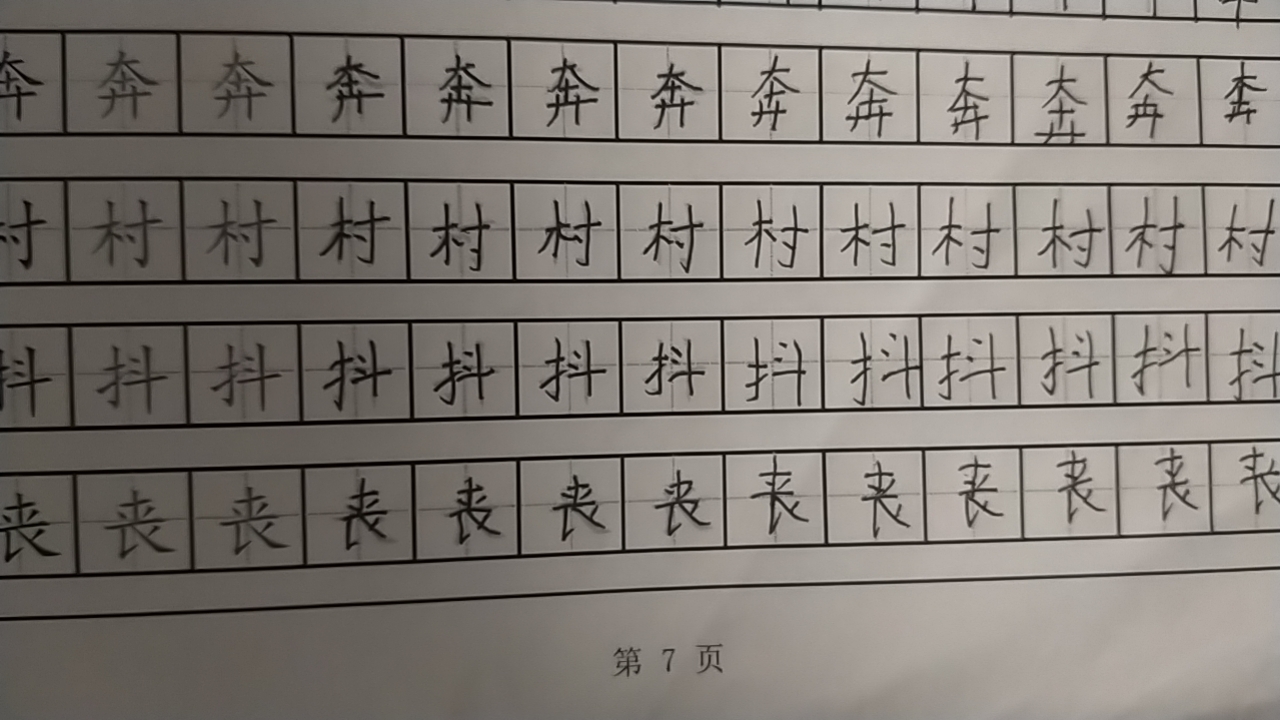 奔奔奔奔奔奔奔奔奔奔奔奔奔
村村村村村村村村村村村村村
抖抖抖抖抖抖抖抖抖抖抖抖抖
丧丧丧丧丧丧丧丧丧丧丧丧丧
第 7 页